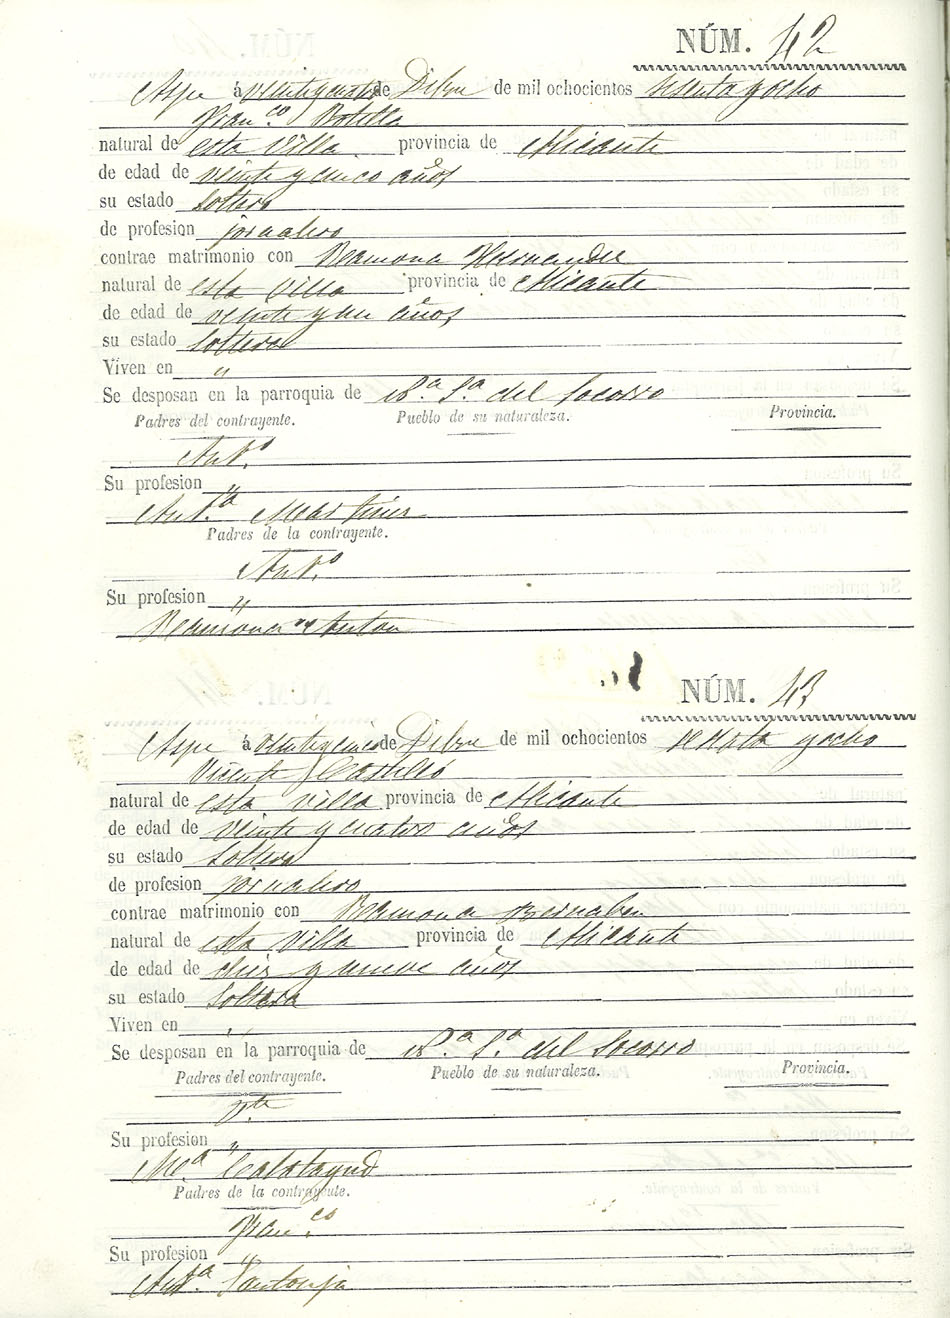 NÚM. 42
Aspe á veinticuatro de Dibre de mil ochocientos sesenta y ocho
Fran.co Botella
natural de esta Villa provincia de Alicante
de edad de veinte y cinco años
su estado Soltero
de profesion jornalero
contrae matrimonio con Ramona Hernandez
natural de esta Villa provincia de Alicante
de edad de veinte y un años
su estado Soltera
Viven en "
Se desposan en la parroquia de N.a S.a del Socorro
Padres del contrayente. Pueblo de su naturaleza. Provincia.
Ant.o
Su profesion "
Ant.a Martinez
Padres de la contrayente.
Ant.o
Su profesion "
Ramona Anton
NÚM. 43
Aspe á veinticinco de Dibre de mil ochocientos sesenta y ocho
Vicente Castelló
natural de esta villa provincia de Alicante
de edad de veinte y cuatro años
su estado Soltero
de profesion jornalero
contrae matrimonio con Ramona Bernabeu
natural de esta Villa provincia de Alicante
de edad de diez y nueve años
su estado Soltera
Viven en "
Se desposan en la parroquia de N.a S.a del Socorro
Padres del contrayente. Pueblo de su naturaleza. Provincia.
V.te
Su profesion "
M.a Calatayud
Padres de la contrayente.
Fran.co
Su profesion "
Ant.a Pantoja